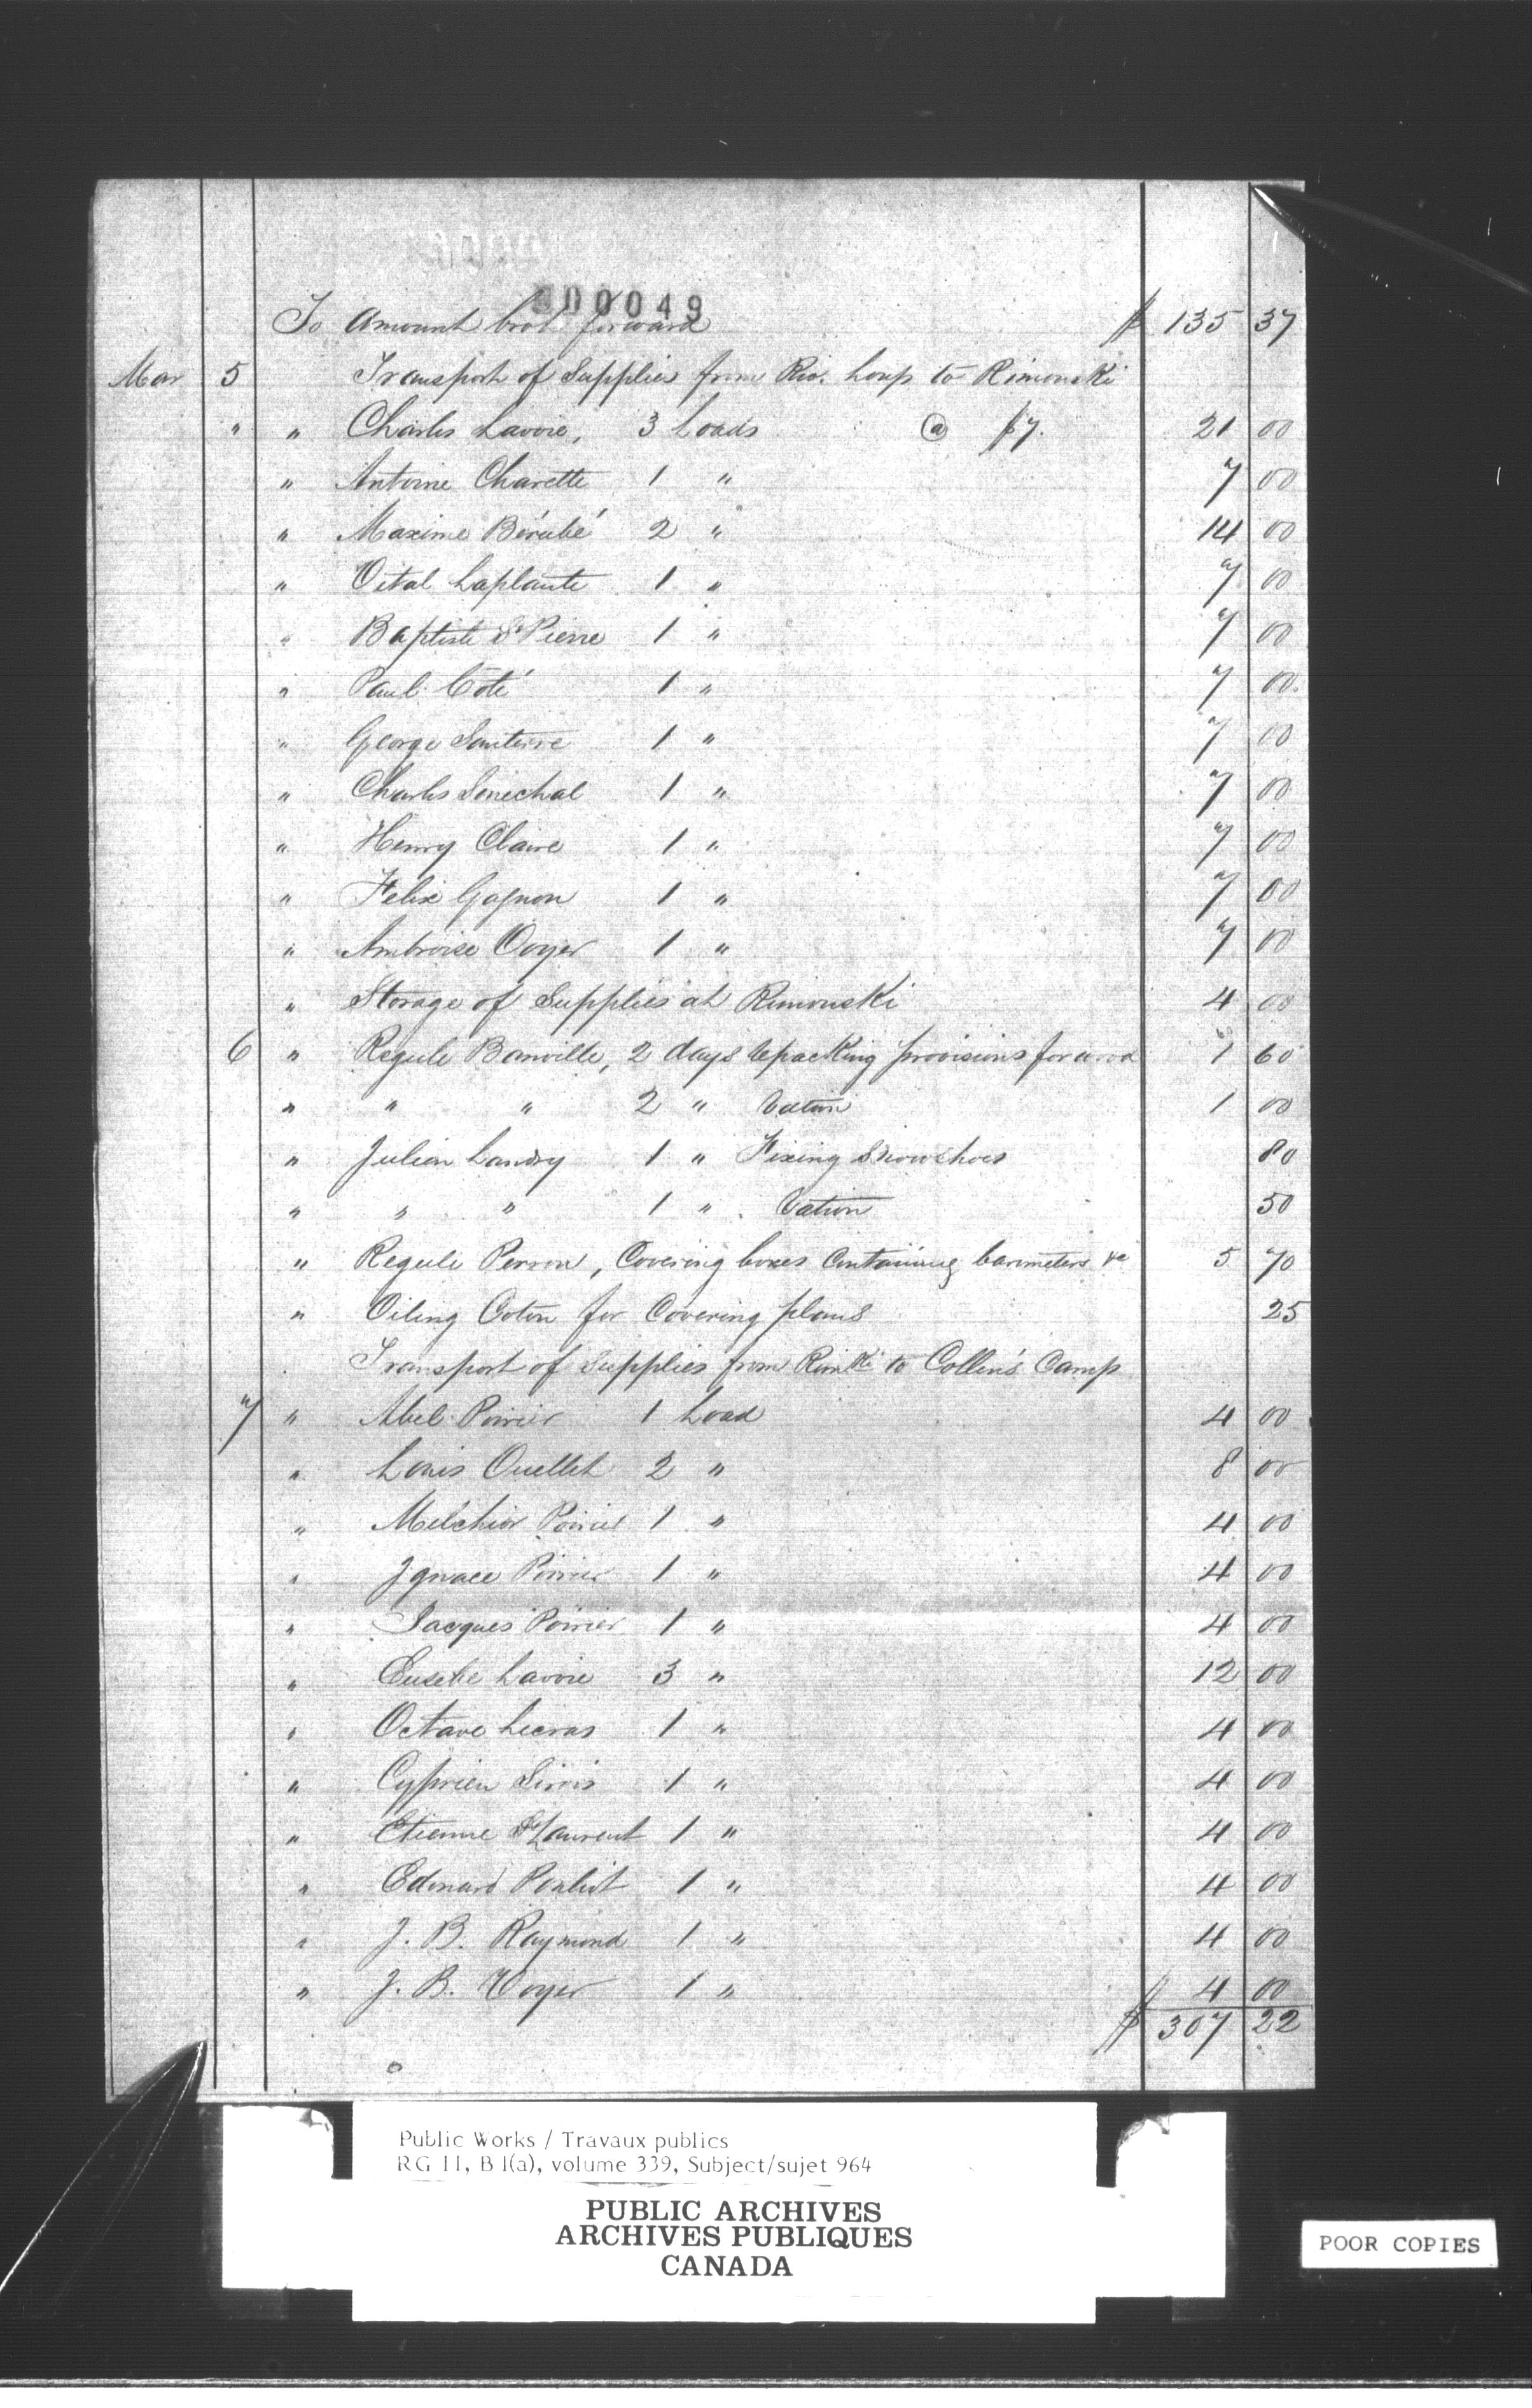 000049
To Amount brot forward $ 135 37
Mar 5 Transport of Supplies from Riv. Loup to Rimouski
" " Charles Lavoie, 3 Loads @ $7. 21 00
" Antoine Charette 1 " 7 00
" Maxime Bérubé 2 " 14 00
" Vital Laplante 1 " 7 00
" Baptiste St Pierre 1 " 7 00
" Paul Coté 1 " 7 00
" George Santerre 1 " 7 00
" Charles Senechal 1 " 7 00
" Henry Claire 1 " 7 00
" Felix Gagnon 1 " 7 00
" Ambroise Voyer 1 " 7 00
" Storage of Supplies at Rimouski 4 00
6 " Regule Banville, 2 days repacking provisions for wood 1 60
" " " 2 " ration 1 00
" Julien Landry 1 " Fixing Snowshoes 80
" " " 1 " ration 50
" Regule Perron, Covering boxes Containing barometers &c 5 70
" Oiling Coton for Covering plans 25
Transport of Supplies from Rimki to Collin's Camp
7 " Abel Poirier 1 Load 4 00
" Louis Ouellet 2 " 8 00
" Melchior Poirier 1 " 4 00
" Ignace Poirier 1 " 4 00
" Jacques Poirier 1 " 4 00
" Eusebe Lavoie 3 " 12 00
" Octave 1 " 4 00
" Cyprien Sirois 1 " 4 00
" Etienne St Laurent 1 " 4 00
" Edouard Pouliot 1 " 4 00
" J. B. Raymond 1 " 4 00
" J. B. Voyer 1 " 4 00
$ 307 22
Public Works / Travaux publics
RG 11, B 1(a), volume 339, Subject/sujet 964
PUBLIC ARCHIVES
ARCHIVES PUBLIQUES
CANADA
POOR COPIES